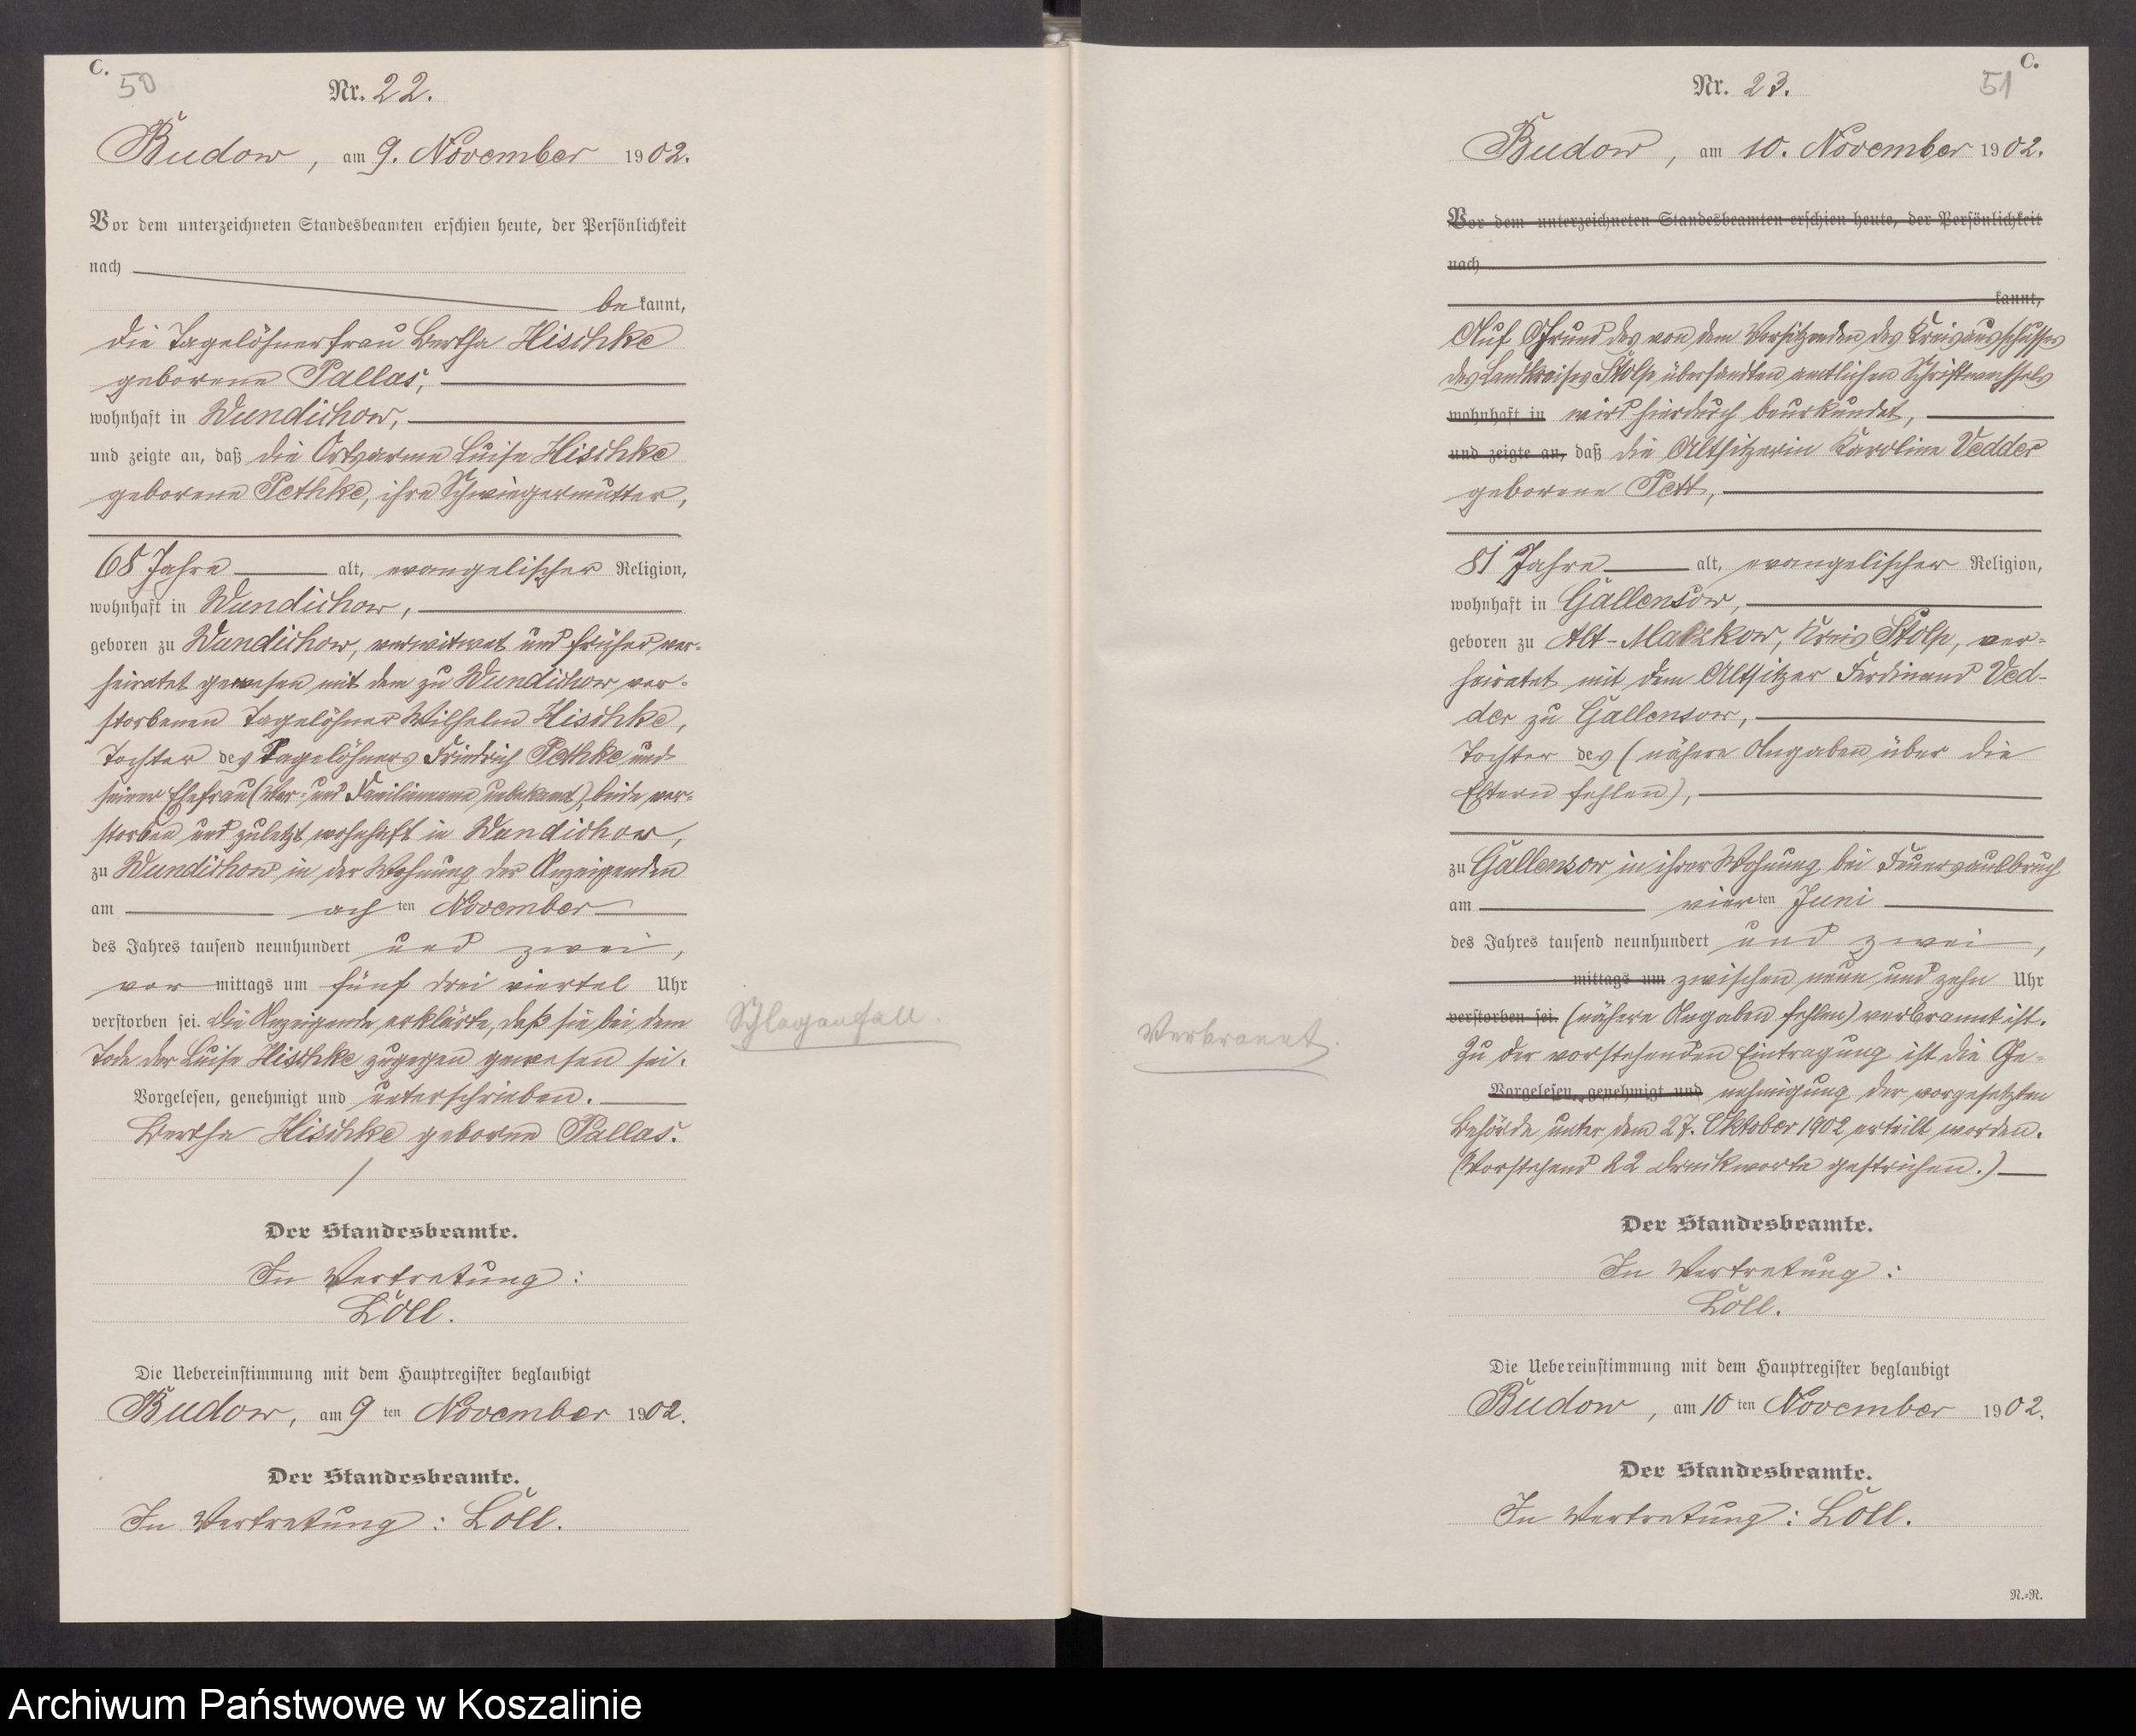 C.
50
Nr. 22.
Budow, am 9. November 1902.
Vor dem unterzeichneten Standesbeamten erschien heute, der Persönlichkeit
nach
bekannt,
die Tagelöhnerfrau Bertha Hischke
geborene Pallas,
wohnhaft in Wundichow,
und zeigte an, daß die Ortsarme Luise Hischke
geborene Pethke, ihre Schwiegermutter,
68 Jahre alt, evangelischer Religion,
wohnhaft in Wundichow,
geboren zu Wundichow, verwitwet und früher ver-
heiratet gewesen mit dem zu Wundichow ver-
storbenen Tagelöhner Wilhelm Hischke,
Tochter des Tagelöhners Friedrich Pethke und
seiner Ehefrau (Vor- und Familienname unbekannt), beide ver-
storben und zuletzt wohnhaft in Wundichow,
zu Wundichow in der Wohnung der Anzeigenden
am achten November
des Jahres tausend neunhundert und zwei,
vormittags um fünf drei viertel Uhr
verstorben sei. Die Anzeigende erklärte, daß sie bei dem
Tode der Luise Hischke zugegen gewesen sei.
Vorgelesen, genehmigt und unterschrieben.
Bertha Hischke geborne Pallas.
Der Standesbeamte.
In Vertretung:
Löll.
Die Uebereinstimmung mit dem Hauptregister beglaubigt
Budow, am 9ten November 1902.
Der Standesbeamte.
In Vertretung: Löll.
Schlaganfall.
C.
51
Nr. 23.
Budow, am 10. November 1902.
Vor dem unterzeichneten Standesbeamten erschien heute, der Persönlichkeit
nach
kannt,
Auf Grund des von dem Vorsitzenden des Kreisausschusses
des Landkreises Stolp übersandten amtlichen Schriftwechsels
wohnhaft in wird hierdurch beurkundet,
und zeigte an, daß die Altsitzerin Karoline Vedder
geborene Pett,
81 Jahre alt, evangelischer Religion,
wohnhaft in Gallensow,
geboren zu Alt-Matzkow, Kreis Stolp, ver-
heiratet mit dem Altsitzer Ferdinand Ved-
der zu Gallensow,
Tochter des (nähere Angaben über die
Eltern fehlen),
zu Gallensow in ihrer Wohnung bei Feuersausbruch
am vierten Juni
des Jahres tausend neunhundert und zwei,
mittags um zwischen neun und zehn Uhr
verstorben sei. (nähere Angaben fehlen) verbrannt ist.
Zu der vorstehenden Eintragung ist die Ge-
Vorgelesen, genehmigt und nehmigung der vorgesetzten
Behörde unter dem 27. Oktober 1902 erteilt worden.
(Vorstehend 22 Druckworte gestrichen.)
Der Standesbeamte.
In Vertretung:
Löll.
Die Uebereinstimmung mit dem Hauptregister beglaubigt
Budow, am 10ten November 1902.
Der Standesbeamte.
In Vertretung: Löll.
Verbrannt.
N.=R.
Archiwum Państwowe w Koszalinie